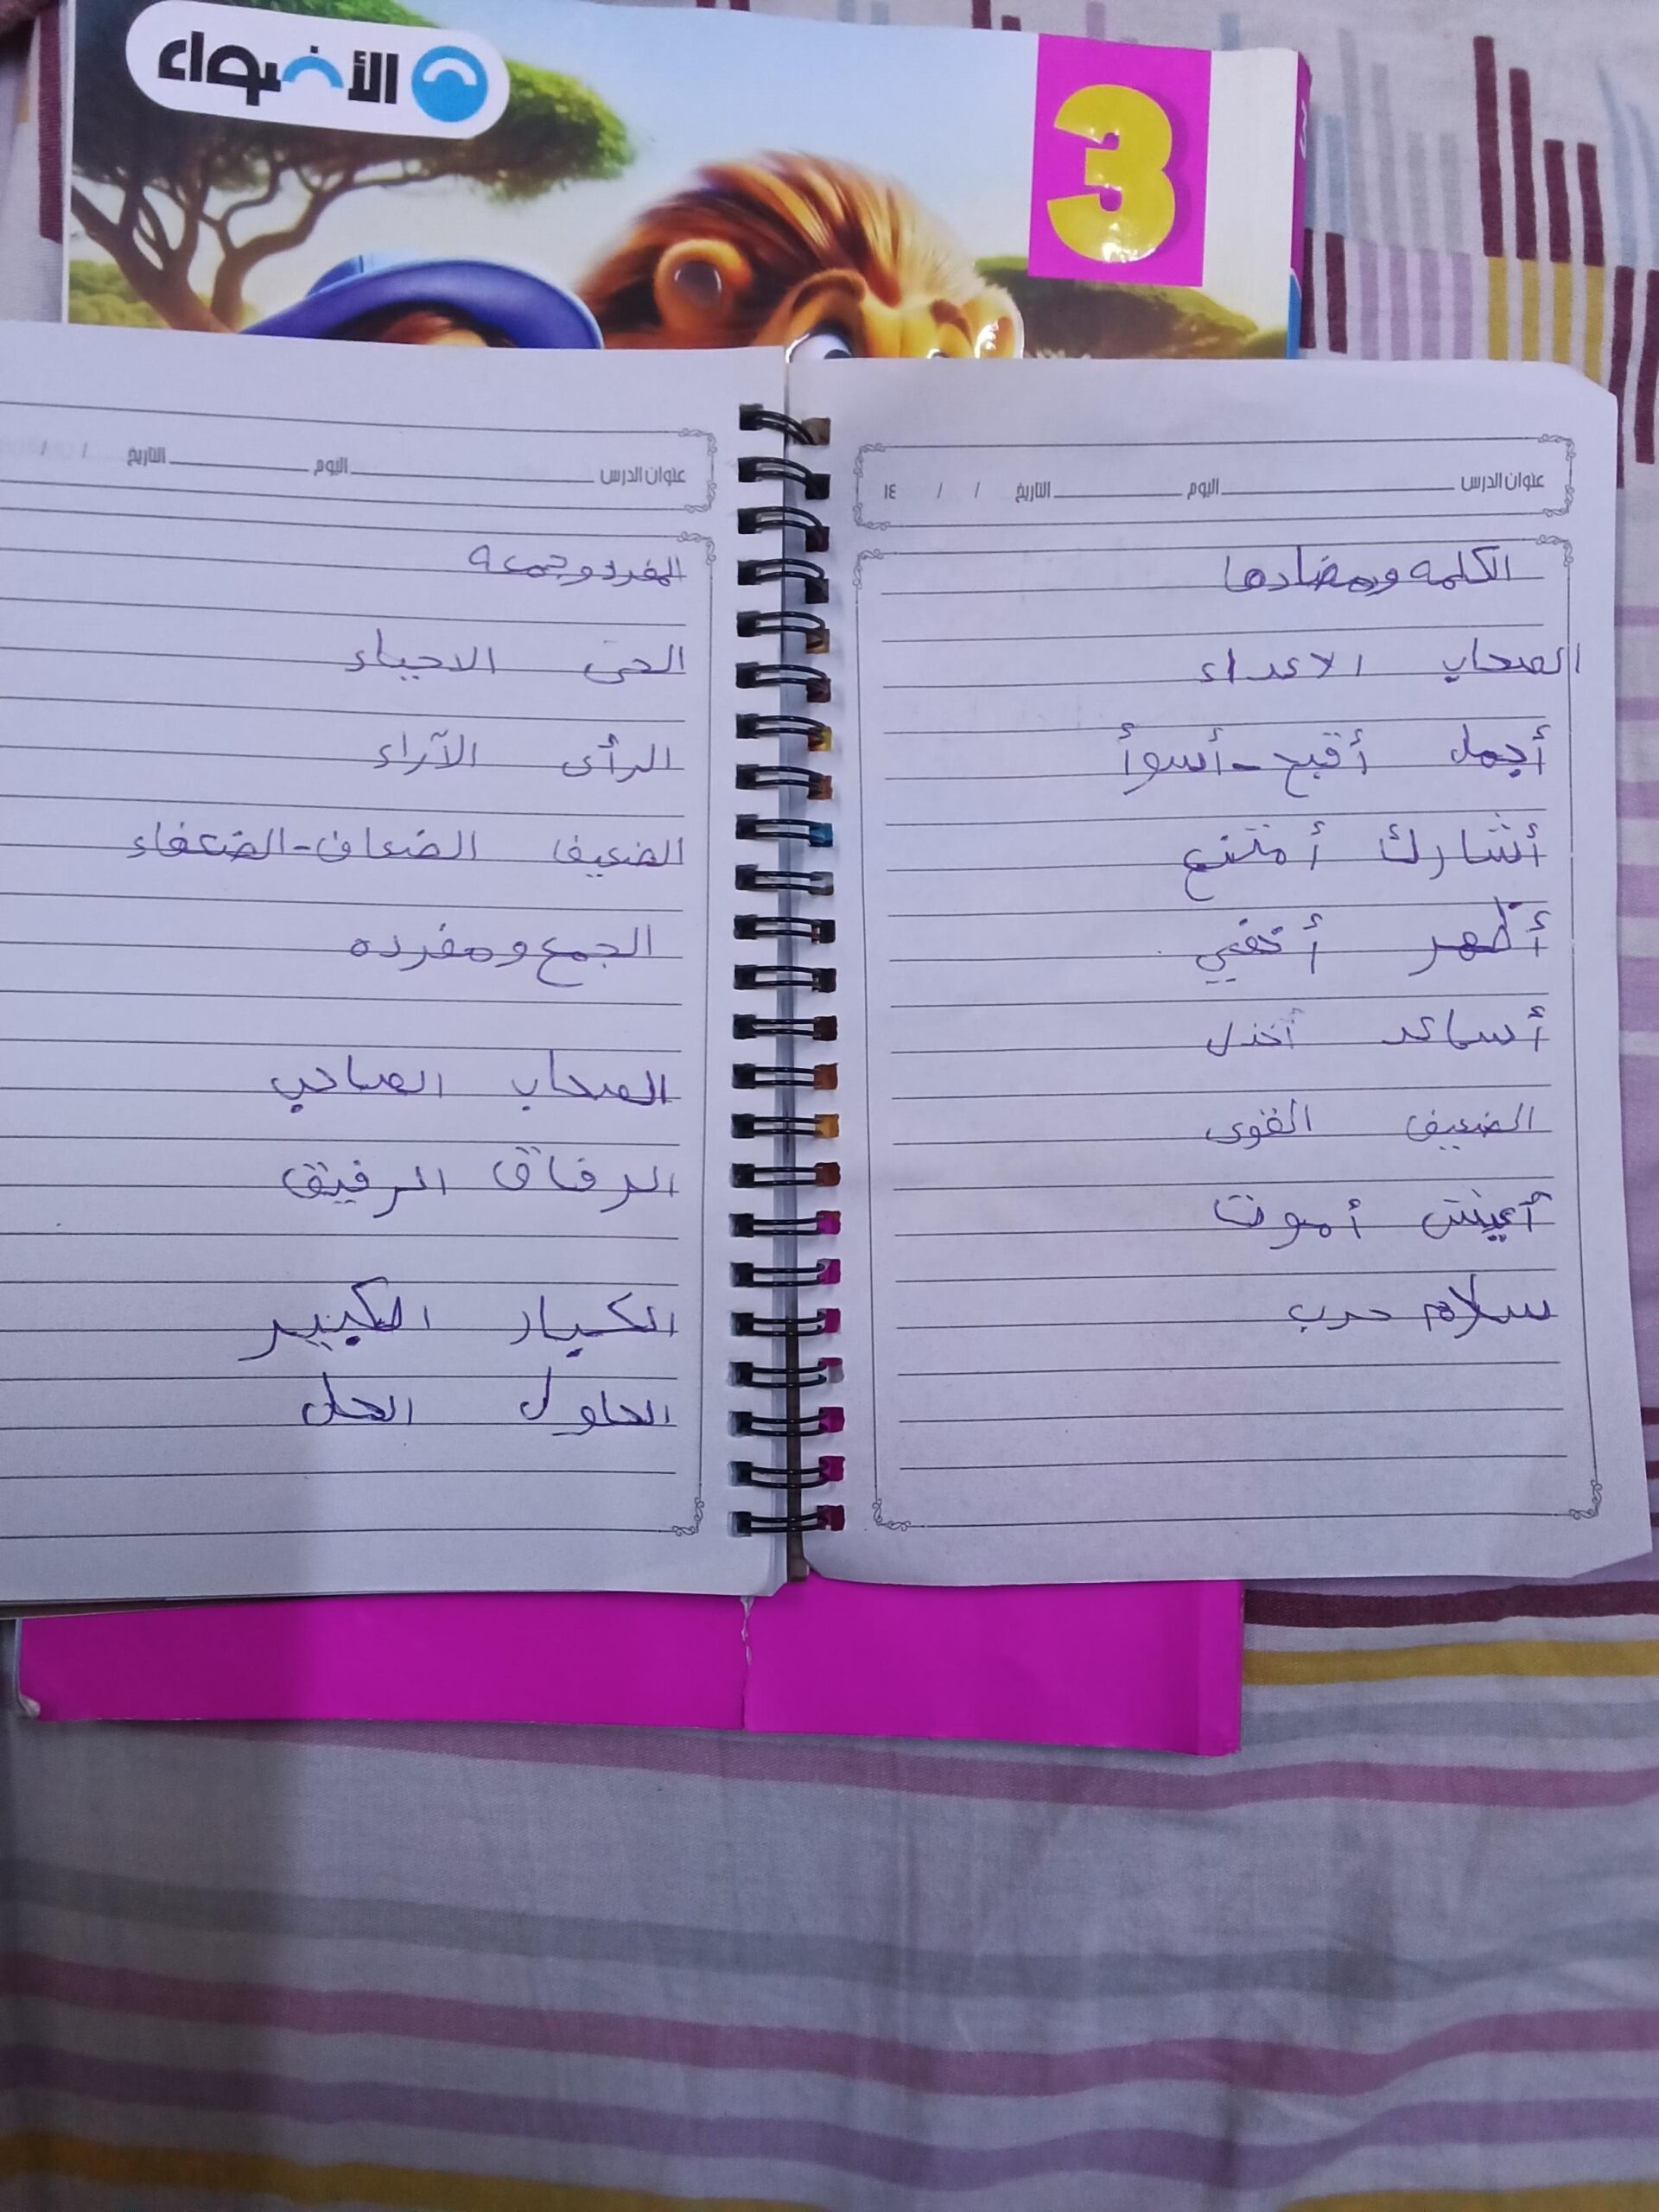 الأضواء
3
عنوان الدرس اليوم التاريخ / / ١٤
الكلمه ومضادها
الصحاب الاعداء
أجمل أقبح - أسوأ
أشارك أمتنع
أظهر أخفي
أساعد أخذل
الضعيف القوى
أعيش أموت
سلام حرب
عنوان الدرس اليوم التاريخ / /
المفرد وجمعه
الحى الاحياء
الرأى الآراء
الضعيف الضعاف - الضعفاء
الجمع ومفرده
الصحاب الصاحب
الرفاق الرفيق
الكبار الكبير
الحلول الحل